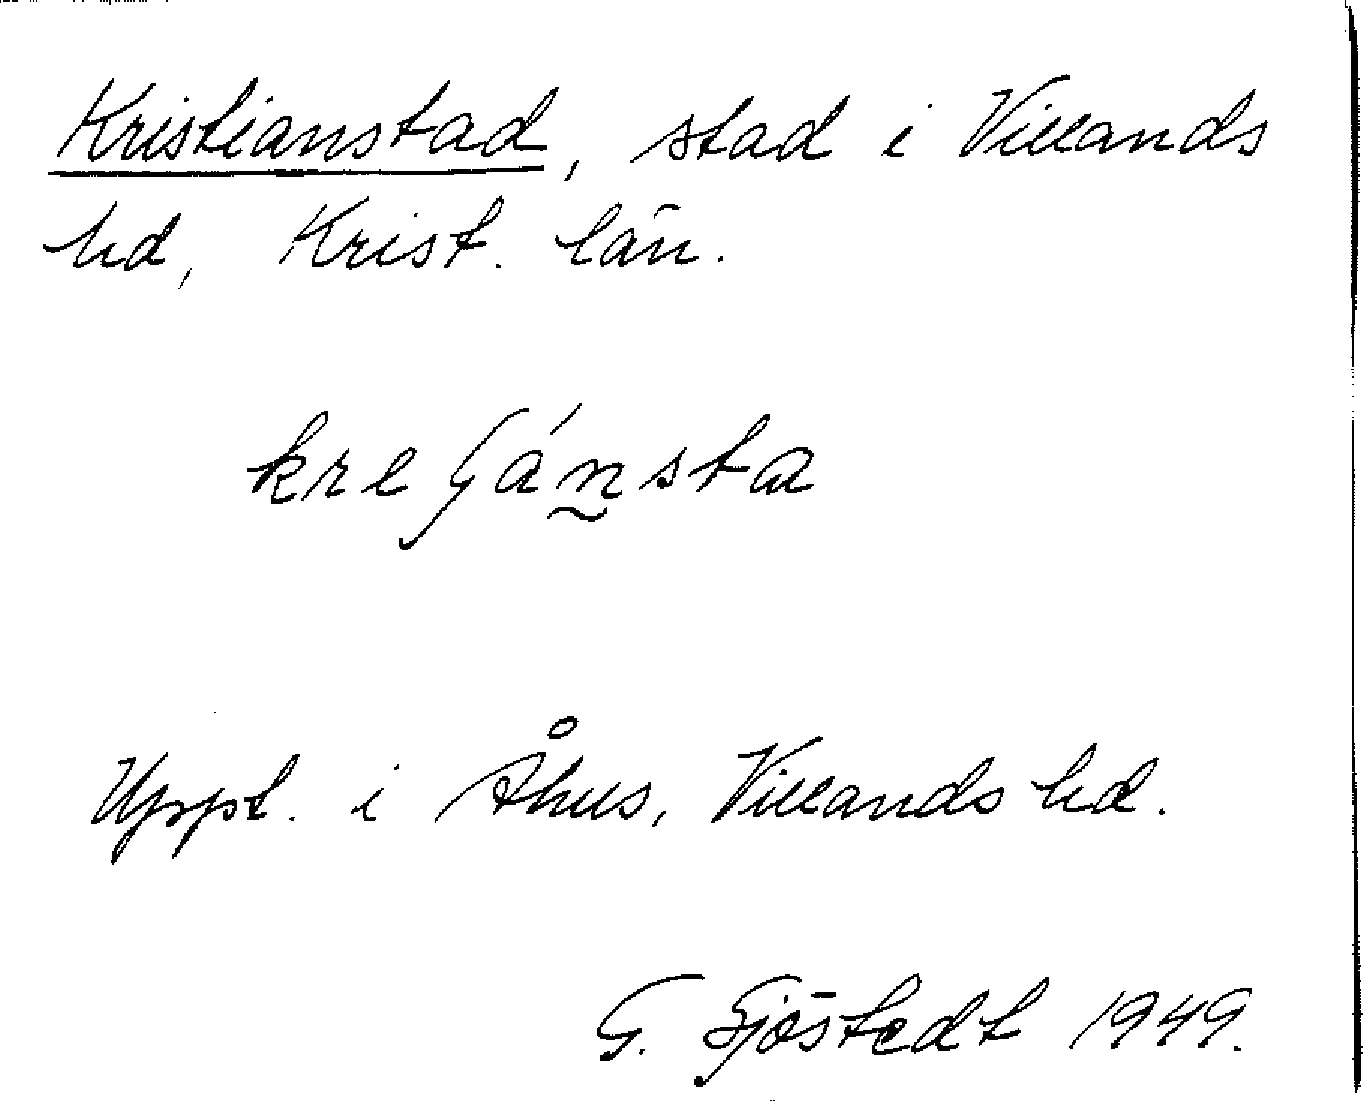 Kristianstad, stad i Villands
hd, Krist. län.
kreʃánsta
Uppt. i Åhus, Villands hd.
G. Sjöstedt 1949.